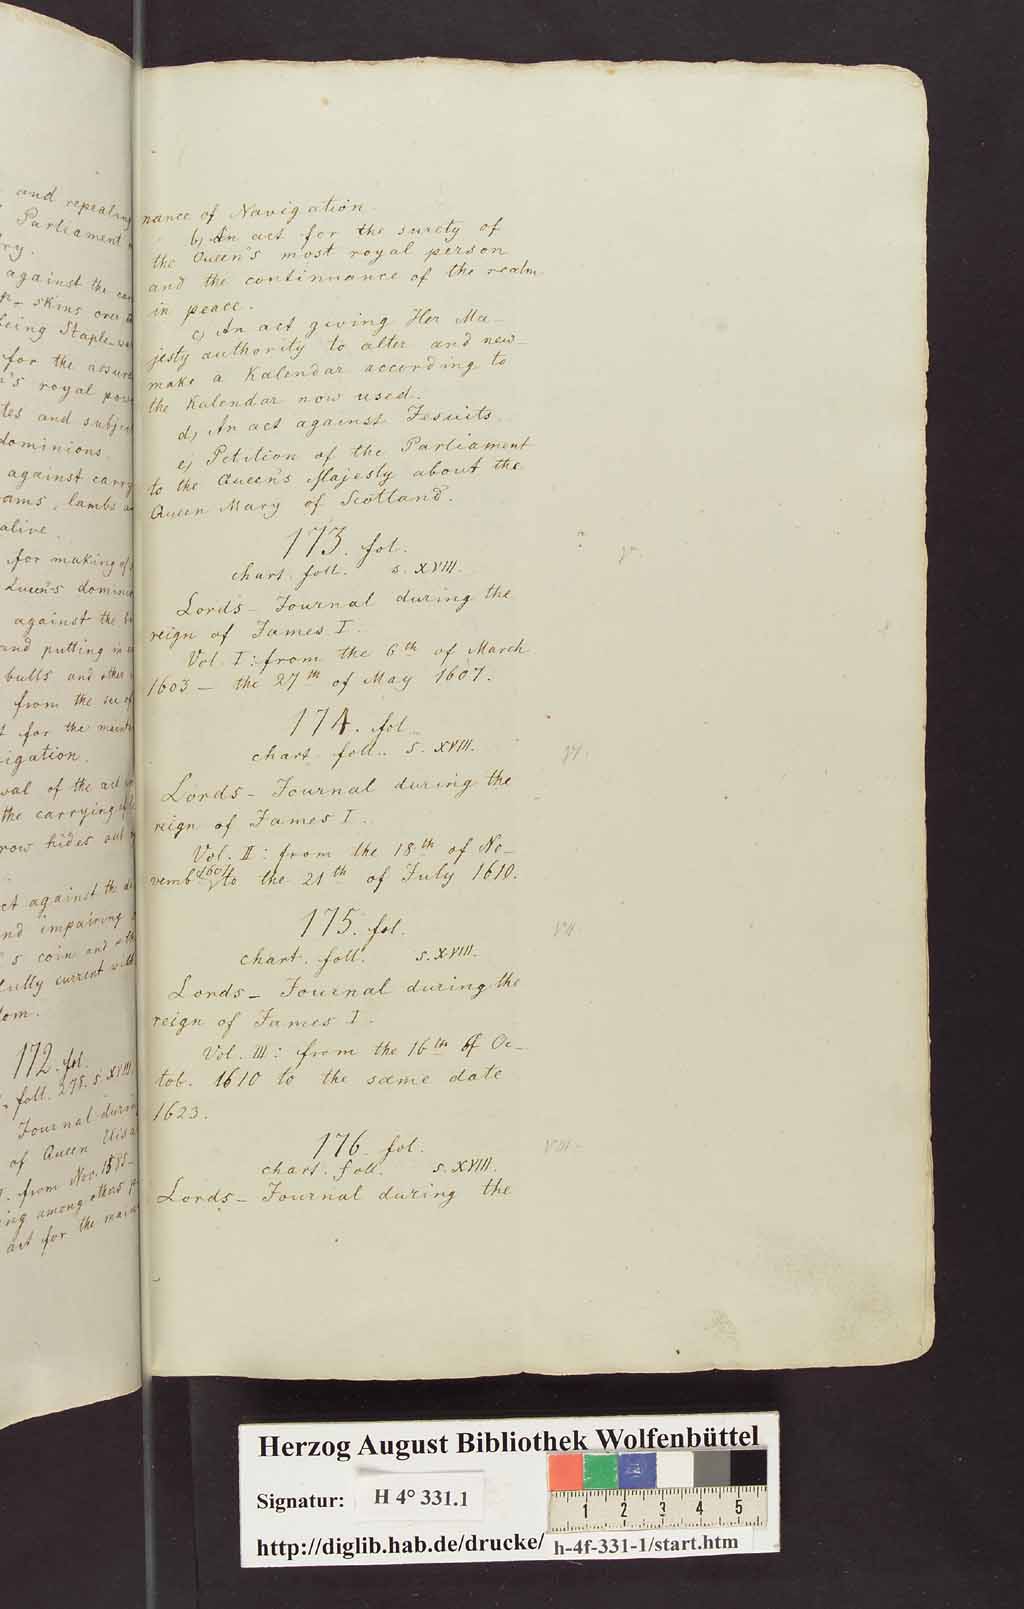 and repealing
Parliament
ry.
against the
skins over
being Staple-
for the assur
n's royal pow
tes and subje
dominions.
against carry
rams, lambs
alive.
for making of
Queen's domin
against the
and putting in
bulls and other
from the see of
for the maint
igation.
val of the act
the carrying
row hides
ct against the
nd impairing
s coin and
fully current with
dom.
172. fol.
foll. 278. s. XVIII
Journal durin
of Queen Elisa
from Nov. 1585-
ing among others
act for the main
nance of Navigation.
b) An act for the surety of
the Queen's most royal person
and the continuance of the realm
in peace.
c) An act giving Her Ma-
jesty authority to alter and new-
make a Kalendar according to
the Kalendar now used.
d) An act against Jesuits.
e) Petition of the Parliament
to the Queen's Majesty about the
Queen Mary of Scotland.
173. fol.
chart. foll. s. XVIII.
Lord's-Journal during the
reign of James I.
Vol. I: from the 6th of March
1603 — the 27th of May 1607.
174. fol.
chart. foll. s. XVIII.
Lords-Journal during the
reign of James I.
Vol. II: from the 18th of No-
vemb. 1607 to the 21th of July 1610.
175. fol.
chart. foll. s. XVIII.
Lords-Journal during the
reign of James I.
Vol. III: from the 16th of Oc-
tob. 1610 to the same date
1623.
176. fol.
chart. foll. s. XVIII.
Lords-Journal during the
Herzog August Bibliothek Wolfenbüttel
Signatur: H 4° 331.1
1 2 3 4 5
http://diglib.hab.de/drucke/ h-4f-331-1/start.htm